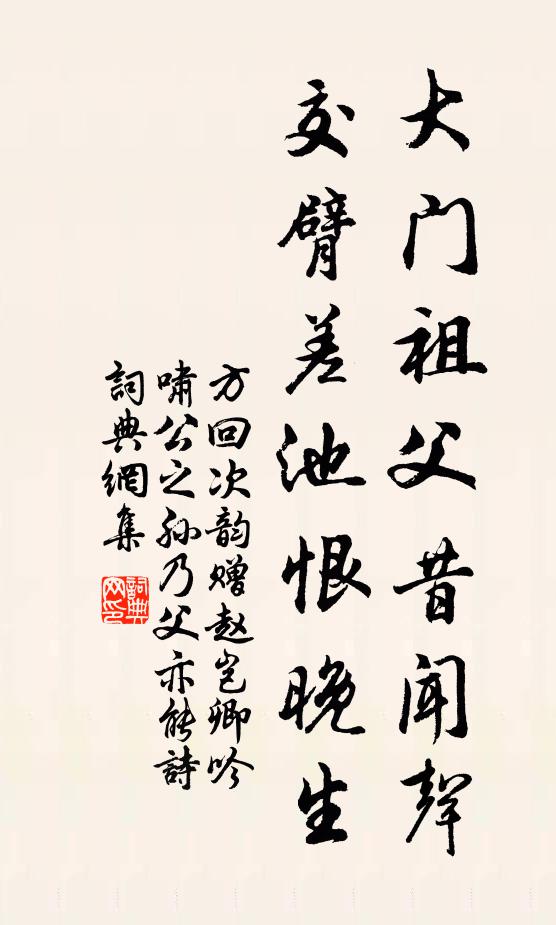 大门祖父昔闻聲
交臂差池恨晚生
方回次韵赠赵岂卿吟
啸公之孙乃父亦能詩
詞典網集